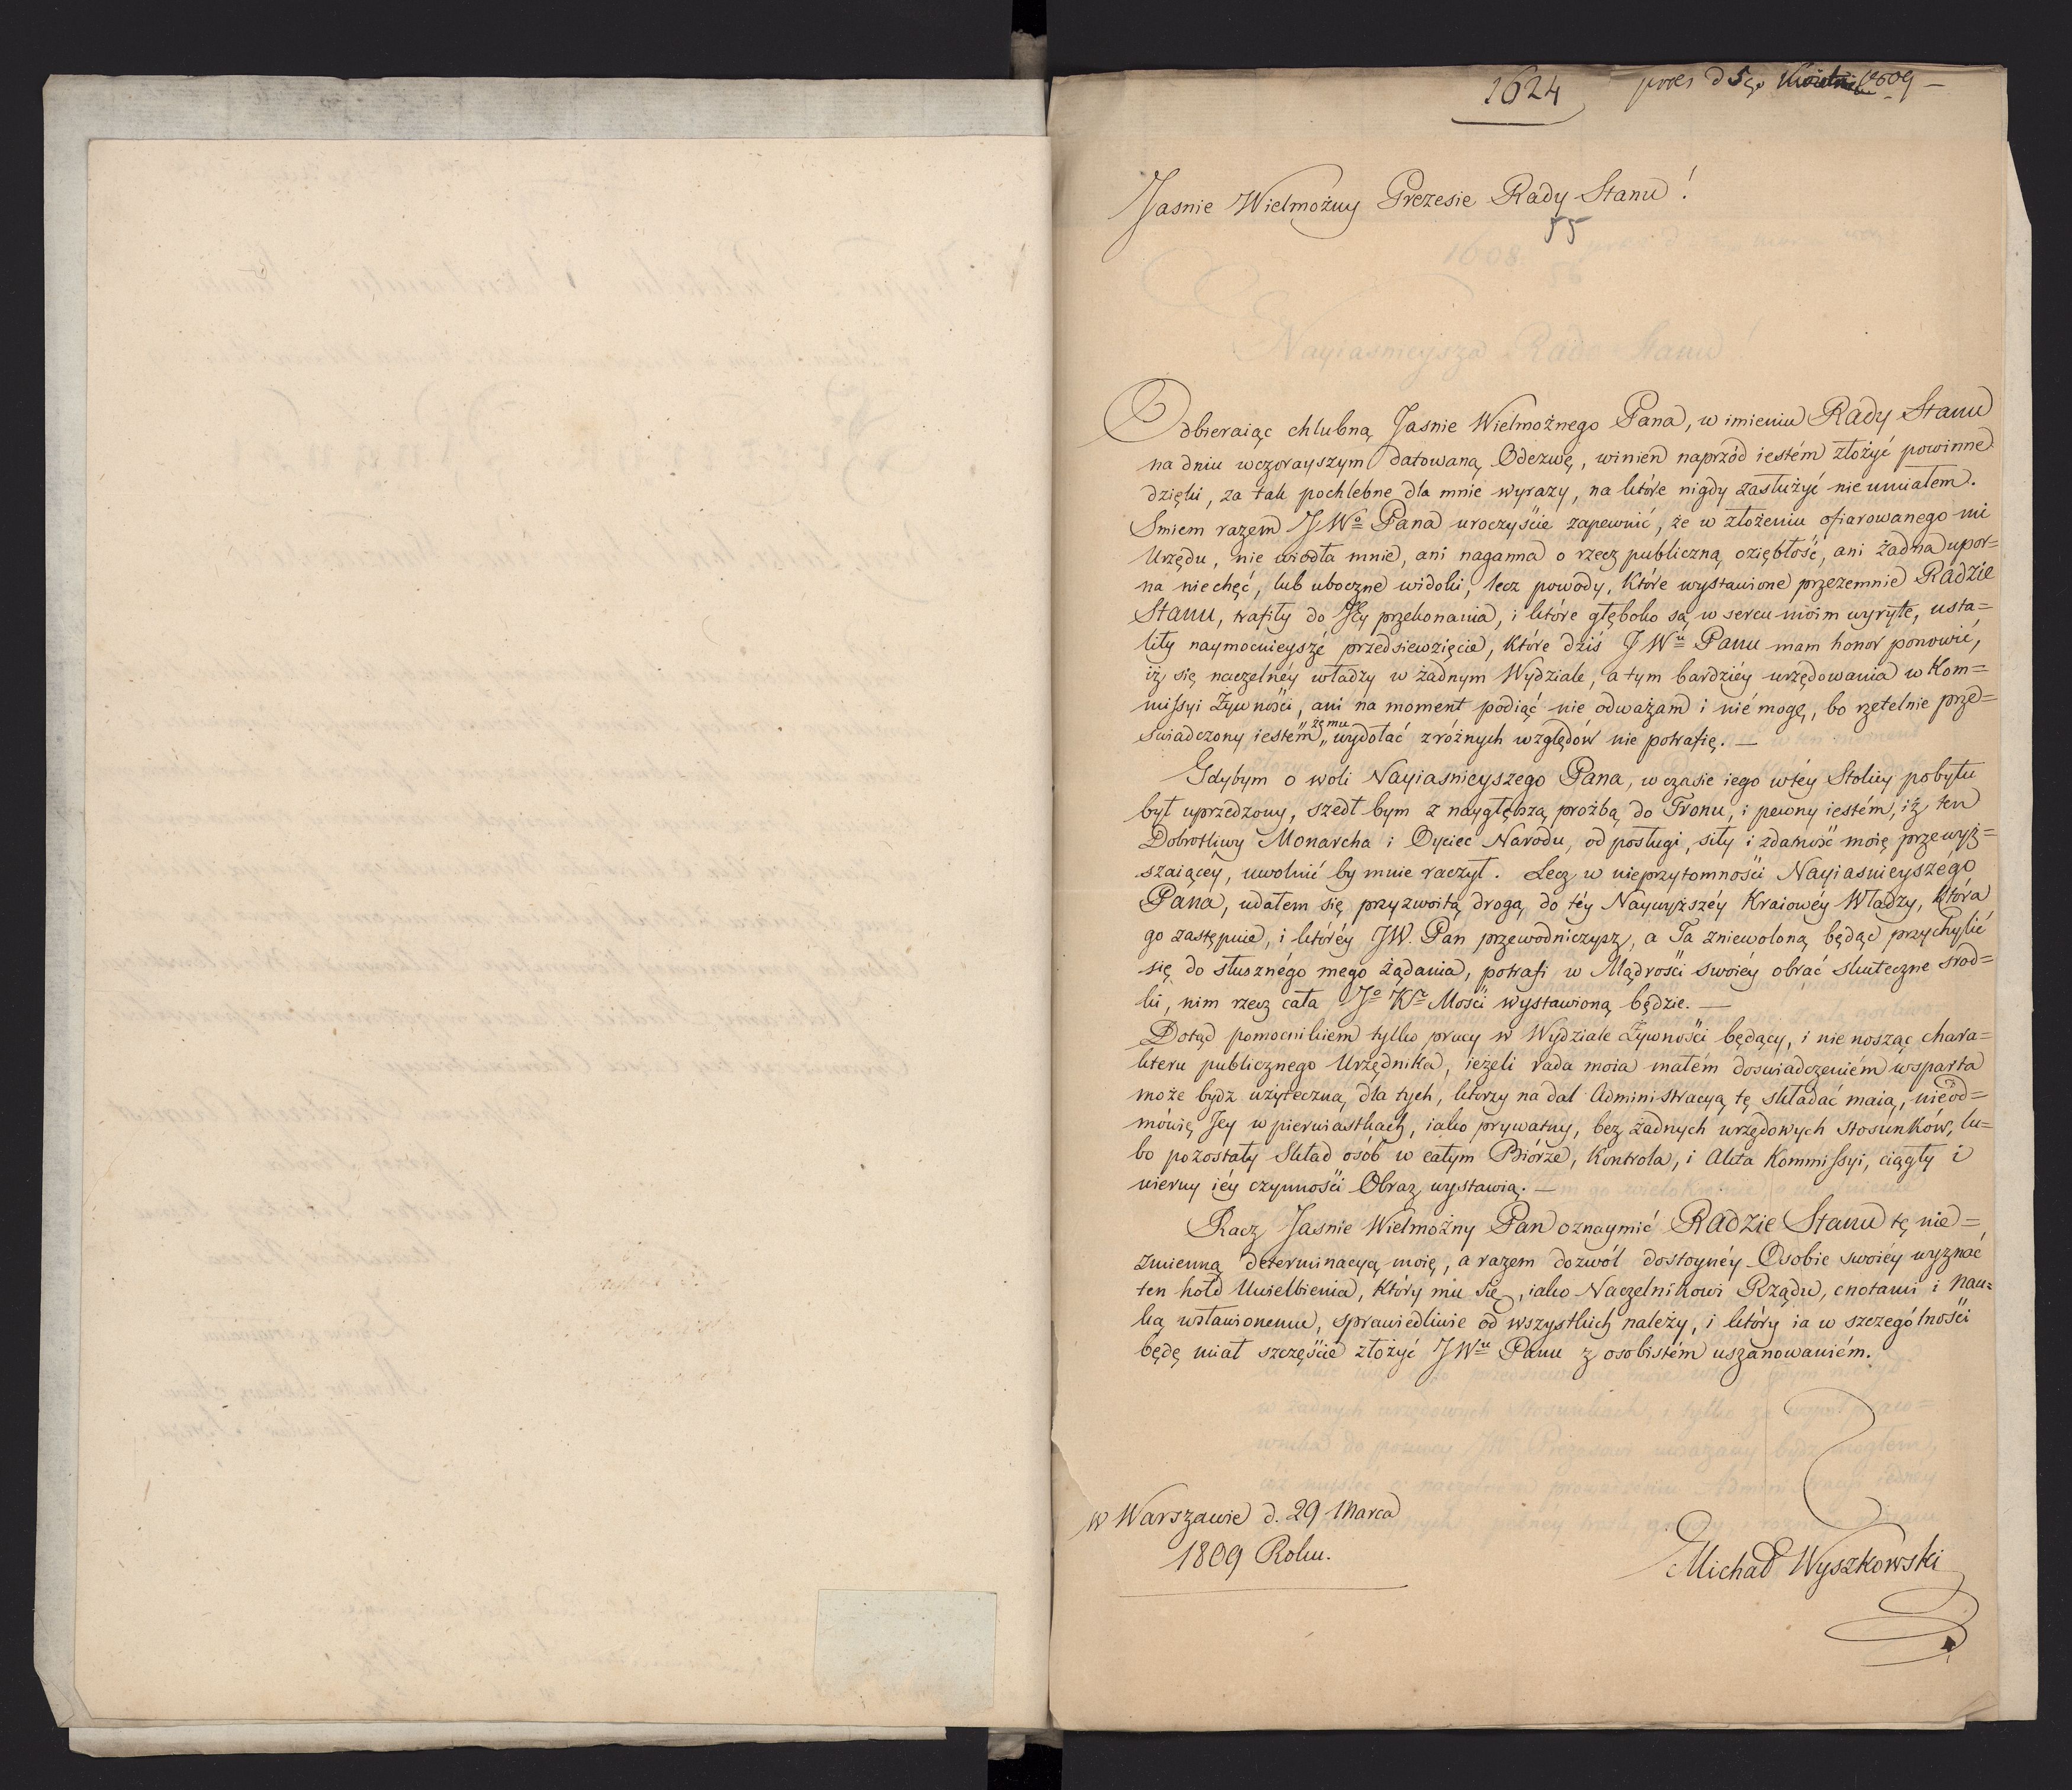 1624
prez d 5go Kwietnia 1809 —
Jasnie Wielmożny Prezesie Rady Stanu!
55
Odbieraiąc chlubną Jasnie Wielmożnego Pana, w imieniu Rady Stanu
na dniu wczorayszym datowaną Odezwę, winien naprzód iestém złożyć powinne
dzięki, za tak pochlebne dla mnie wyrazy, na które nigdy zasłużyć nie umiałem.
Smiem razem JWo Pana uroczyście zapewnić, że w złożeniu ofiarowanego mi
Urzędu, nie wiodła mnie, ani naganna o rzecz publiczną oziębłość, ani żadna upor=
na niechęć, lub uboczne widoki, lecz powody, które wystawione przezemnie Radzie
Stanu, trafiły do Jéy przekonania, i które głęboko są w sercu moim wyryte, usta=
liły naymocnieyszé przedsiewzięcie, które dziś JWu Panu mam honor ponowić,
iż się naczelnéy władzy w żadnym Wydziale, a tym bardziéy urzędowania w Kom=
missyi Żywności, ani na moment podiąć nie odważam i nié mogę, bo rzetelnie prze=
świadczony iestém, „żemu„ wydołać z różnych względów nie potrafię. —
Gdybym o woli Nayiasnieyszego Pana, w czasie iego w téy Stolicy pobytu
był uprzedzony, szedł bym z naygłębszą prożbą do Tronu, i pewny iestém, iż ten
Dobrotliwy Monarcha i Oyciec Narodu, od posługi, siły i zdatność moię przewyż=
szaiącey, uwolnić by mnie raczył. Lecz w nieprzytomności Nayiasnieyszégo
Pana, udałem się przyzwoitą drogą do téy Naywyższéy Kraiowéy Władzy, która
go zastępuie, i któréy JW. Pan przewodniczysz, a Ta zniewoloną będąc przychylić
się do słusznégo mego żądania, potrafi w Mądrości swoiéy obrać skuteczne środ=
ki, nim rzecz cała Jo Kr Mości wystawioną będzie. —
Dotąd pomocnikiem tylko pracy w Wydziale Żywności będący, i nie nosząc chara=
kteru publicznego Urzędnika, ieżeli rada moia małém doswiadczeniém wsparta
może bydz użyteczna, dla tych, którzy na dal Administracyą tę składać maią, nieod=
mówię Jéy w pierwiastkach, iako prywatny, bez żadnych urzędowych stosunków, lu=
bo pozostały Skład osób w całym Biórze, Kontrola, i Akta Kommissyi, ciągły i
wierny iéy czynności Obraz wystawią. —
Racz Jaśnie Wielmożny Pan oznaymić Radzie Stanu tę nie=
zmienną determinacyą moię, a razem dozwól dostoynéy Osobie swoiéy wyznać
ten hołd Uwielbienia, który mu się, iako Naczelnikowi Rządu, cnotami i nau=
ką wsławionemu, sprawiedliwie od wszystkich należy, i który ia w szczególności
będę miał szczęście złożyć JWu Panu z osobistém uszanowaniém.
w Warszawie d. 29 Marca
1809 Roku.
Michał Wyszkowski